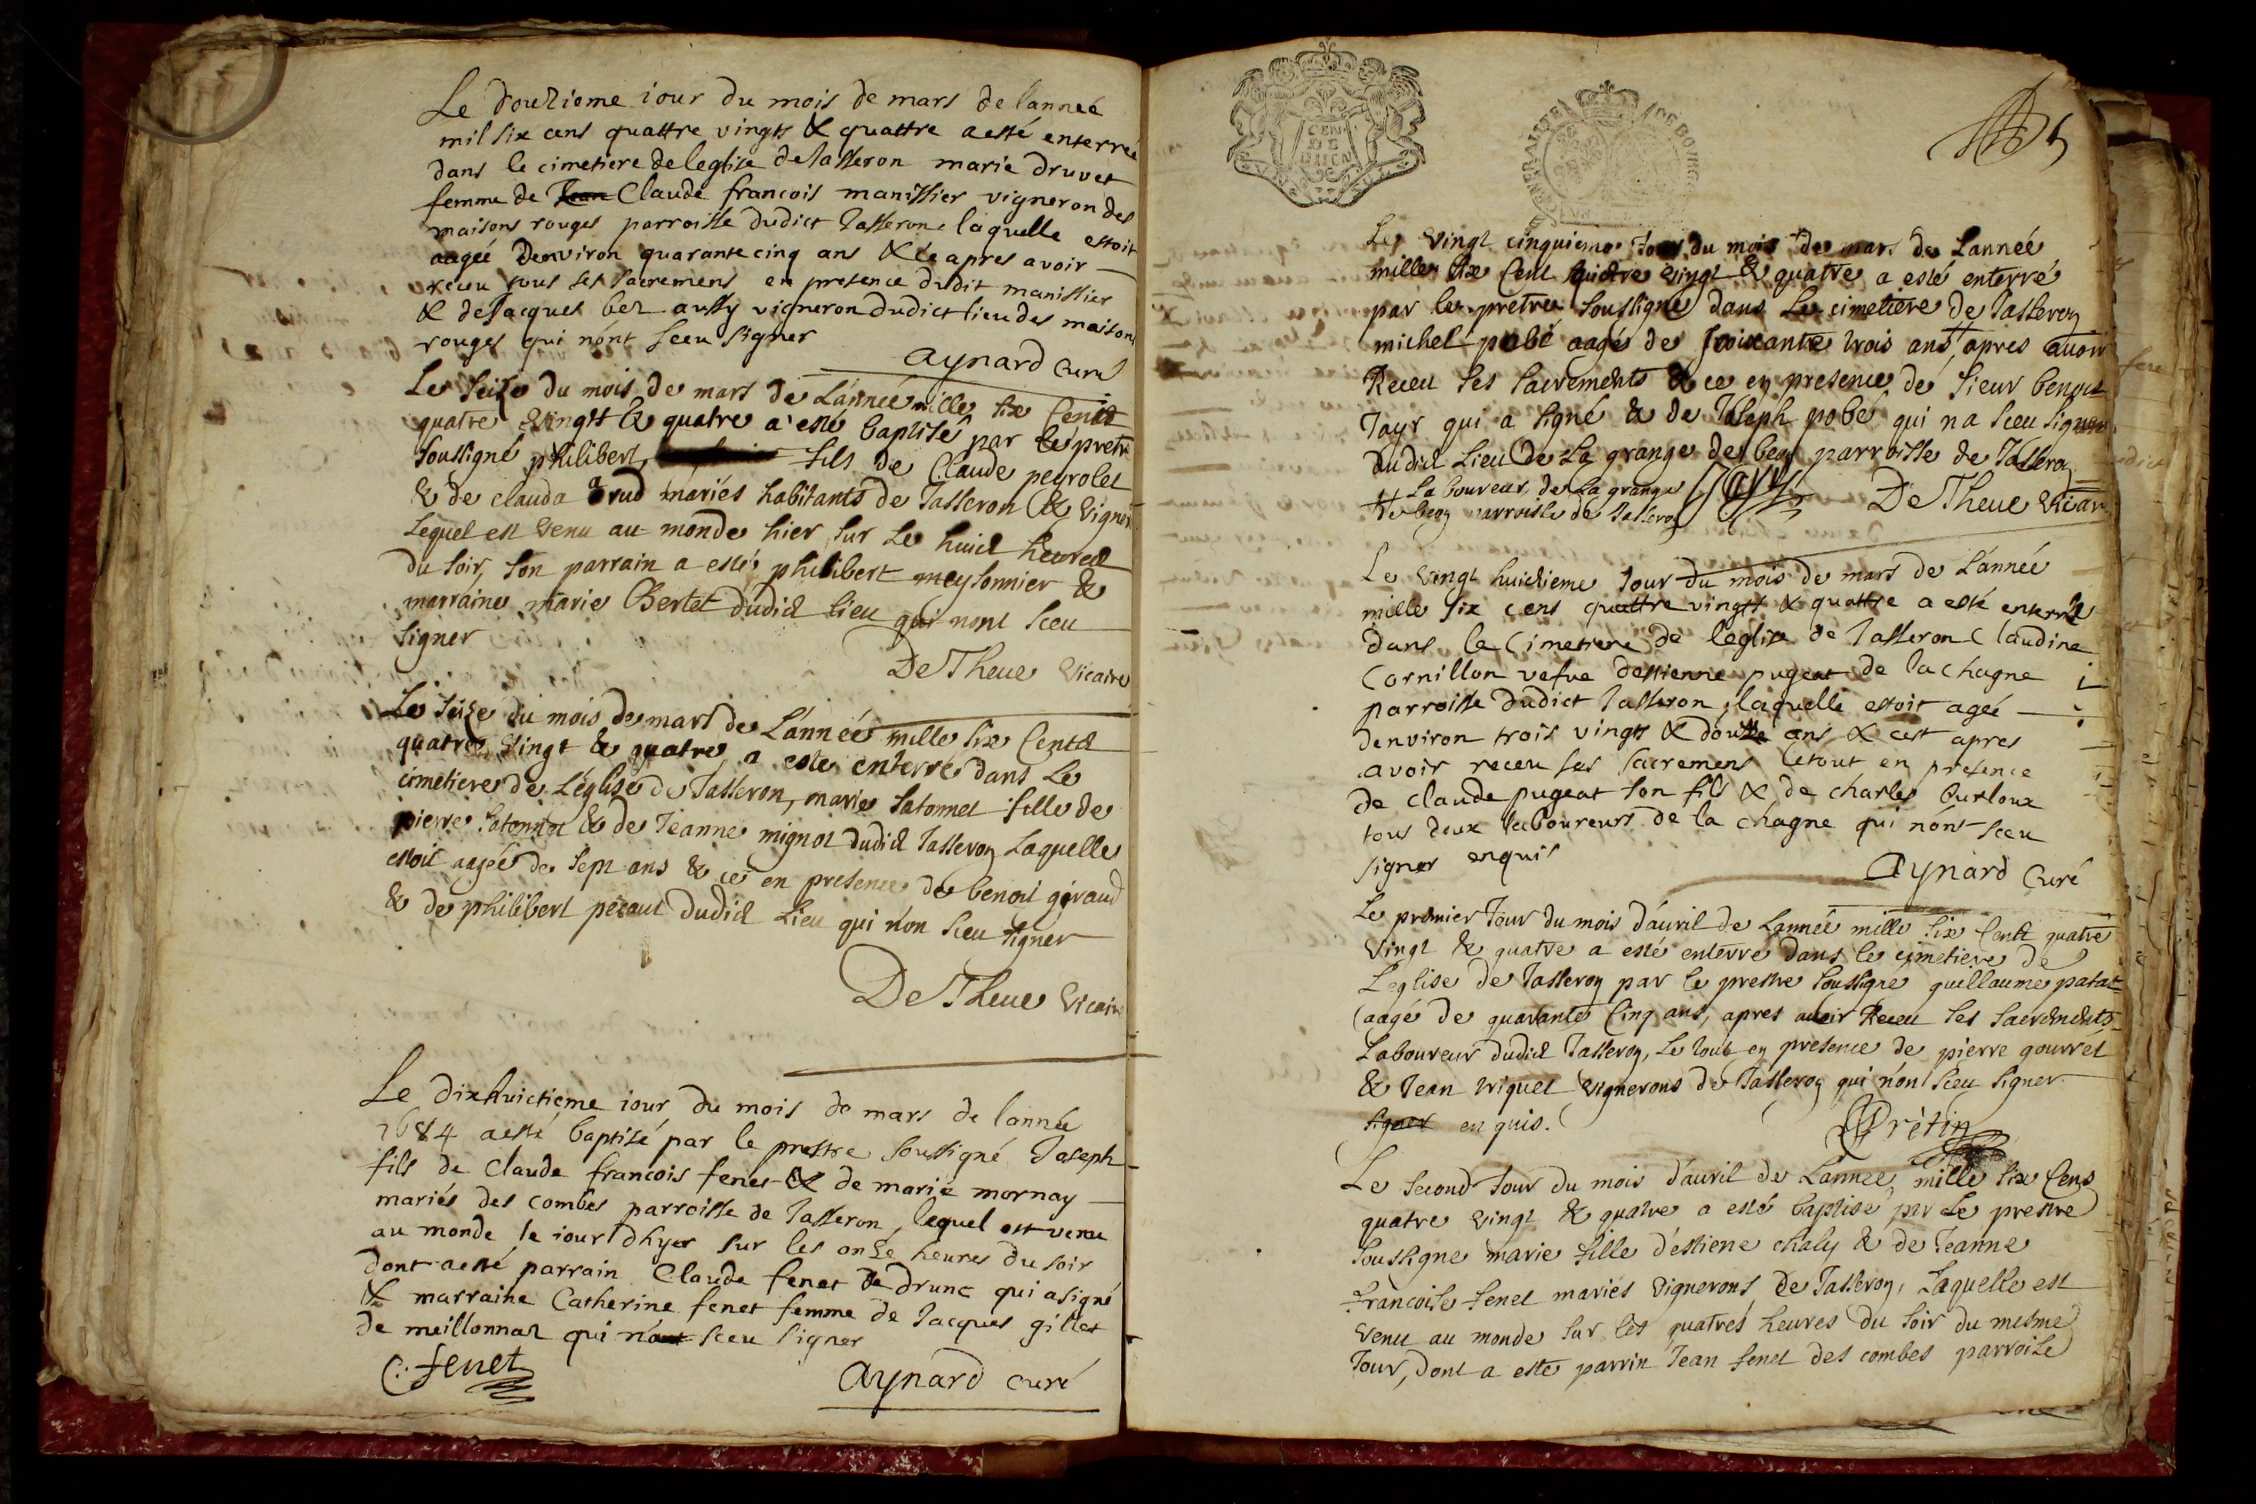 Le douziome iour du mois de mars de lanneé
mil six cens quattre vingts & quattre a esté enterreé
dans le cimetiere de leglise de Jasseron marie druvet
femme de Claude francois manissier vigneron des
maisons rouges parroisse dudict Jasseron laquelle estoit
aageé denviron quarante cinq ans & ce apres avoir
receu tous ses sacremens en presence dudit manissier
& de Jacques bez aussy vigneron dudict lieu des maisons
rouges qui n'ont sceu signer
aynard curé
Le seize du mois de mars de L'année mille six Cents
quatre vingts & quatre a esté baptisé par le pretre
soussigné philibert fils de Claude peyrolet
& de clauda mariés habitants de Jasseron & vigner
Lequel est venu au monde hier sur Le huict heures
du soir, son parrain a esté philibert meysonnier &
marraine marie Bertet dudict lieu qui nont sceu
signer
De Theue vicaire
Le seize du mois de mars de L'année mille six Cents
quatre vingt & quatre a este enterré dans Le
cimetiere de L'église de Jasseron, marie satonnet fille de
pierre satonnet & de Jeanne mignot dudict Jasseron Laquelle
estoit aagée de sept ans & ce en presence de benoit géraud
& de philibert péraut dudict Lieu qui n'on sceu signer
De Theue vicaire
Le dixhuictieme iour du mois de mars de lanneé
1684 a esté baptisé par le prestre soussigné Joseph
fils de Claude francois fenet & de marie mornay
mariés des combes parroisse de Jasseron, lequel est venu
au monde le iour dhyer sur les onze heures du soir
dont a esté parrain Claude fenet de drunc qui a signé
& marraine Catherine fenet femme de Jacques gillet
de meillonnaz qui n'a sceu signer
C: fenet
aynard curé
CEN
DE
5
Le vingt cinquieme Jour du mois de mars de Lanneé
mille six Cent quatre vingt & quatre a esté enterré
par le pretre soussigné dans Le cimetiere de Jasseron
michel pobé aagé de soixante trois ans # apres avoir
Receu ses sacrements & ce en presence de sieur benoit
Jayr qui a signé & de Joseph pobé qui n'a sceu signer
dudict Lieu de La grange des beoz parroisse de Jasseron
# Laboureur de La grange
de beoz parroisse de Jasseron
Jayr
De Theue vicair
Le vingt huictieme Jour du mois de mars de L'année
mille six cens quattre vingts & quattre a esté enterré
dans le Cimetiere de leglise de Jasseron Claudine
Cornillon vefve destienne pugeat de la chagne
parroisse dudict Jasseron, laquelle estoit ageé
denviron trois vingts & ans & cest apres
avoir receu ses sacremens le tout en presence
de Claude pugeat son fils & de charles burloux
tous deux laboureurs de la chagne qui n'ont sceu
signer enquis
Aynard Curé
Le premier Jour du mois d'auril de Lanneé mille six Cents quatre
vingt & quatre a esté enterré dans le cimetiere de
L'eglise de Jasseron par le prestre soussigné guillaume patat
aagé de quarante Cinq ans, apres avoir Receu ses sacrements
Laboureur dudict Jasseron, Le tout en presence de pierre gourret
& Jean triquet vignerons de Jasseron qui n'on sceu signer
signer en quis.
prétin
Le second Jour du mois d'auril de L'anneé mille six Cens
quatre vingt & quatre a esté baptisé par Le prestre
soussigné marie fille d'estiene chaly & de Jeanne
francoise fenet mariés vignerons de Jasseron, Laquelle est
venu au monde sur les quatres heures du soir du mesme
Jour, dont a este parrin Jean fenet des combes parroisse